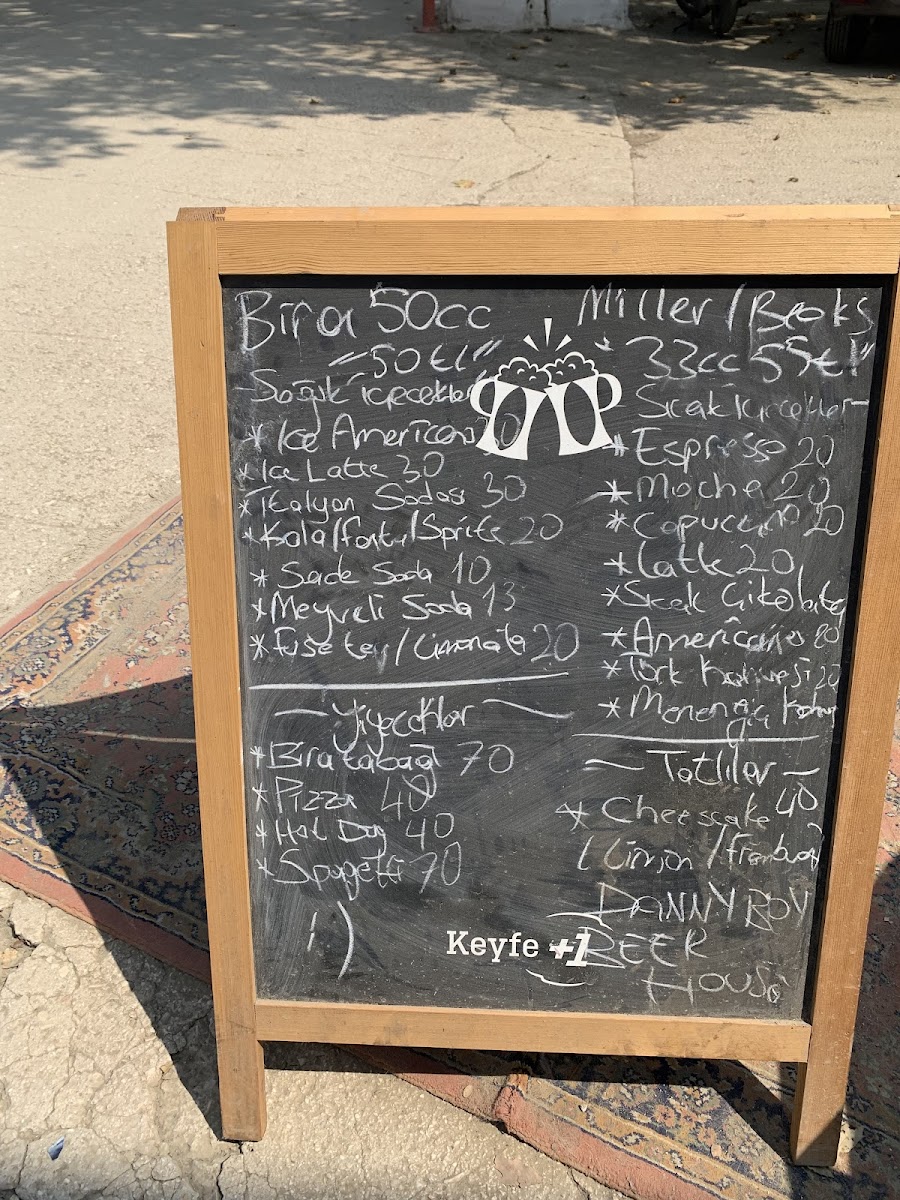 Bira 50cc
"50tl"
Soğuk İçecekler
* Ice Americano 20
* Ice Latte 30
* İtalyan Sodası 30
* Kola/fanta/Sprite 20
* Sade Soda 10
* Meyveli Soda 13
* fuse tea/Limonata 20
Yiyecekler
* Bira tabağı 70
* Pizza 40
* Hot Dog 40
* Spagetti 70
:)
Miller/Becks
33cc 55tl"
Sıcak İçecekler
* Espresso 20
* Mocha 20
* Capuccino 20
* Latte 20
* Sıcak Çikolata
* Americano 20
* Türk Kahvesi 20
* Menengiç Kahve
Tatlılar
* Cheescake 40
(Limon/Framboğ
DANNY BOY
BEER
HOUSE
Keyfe +1